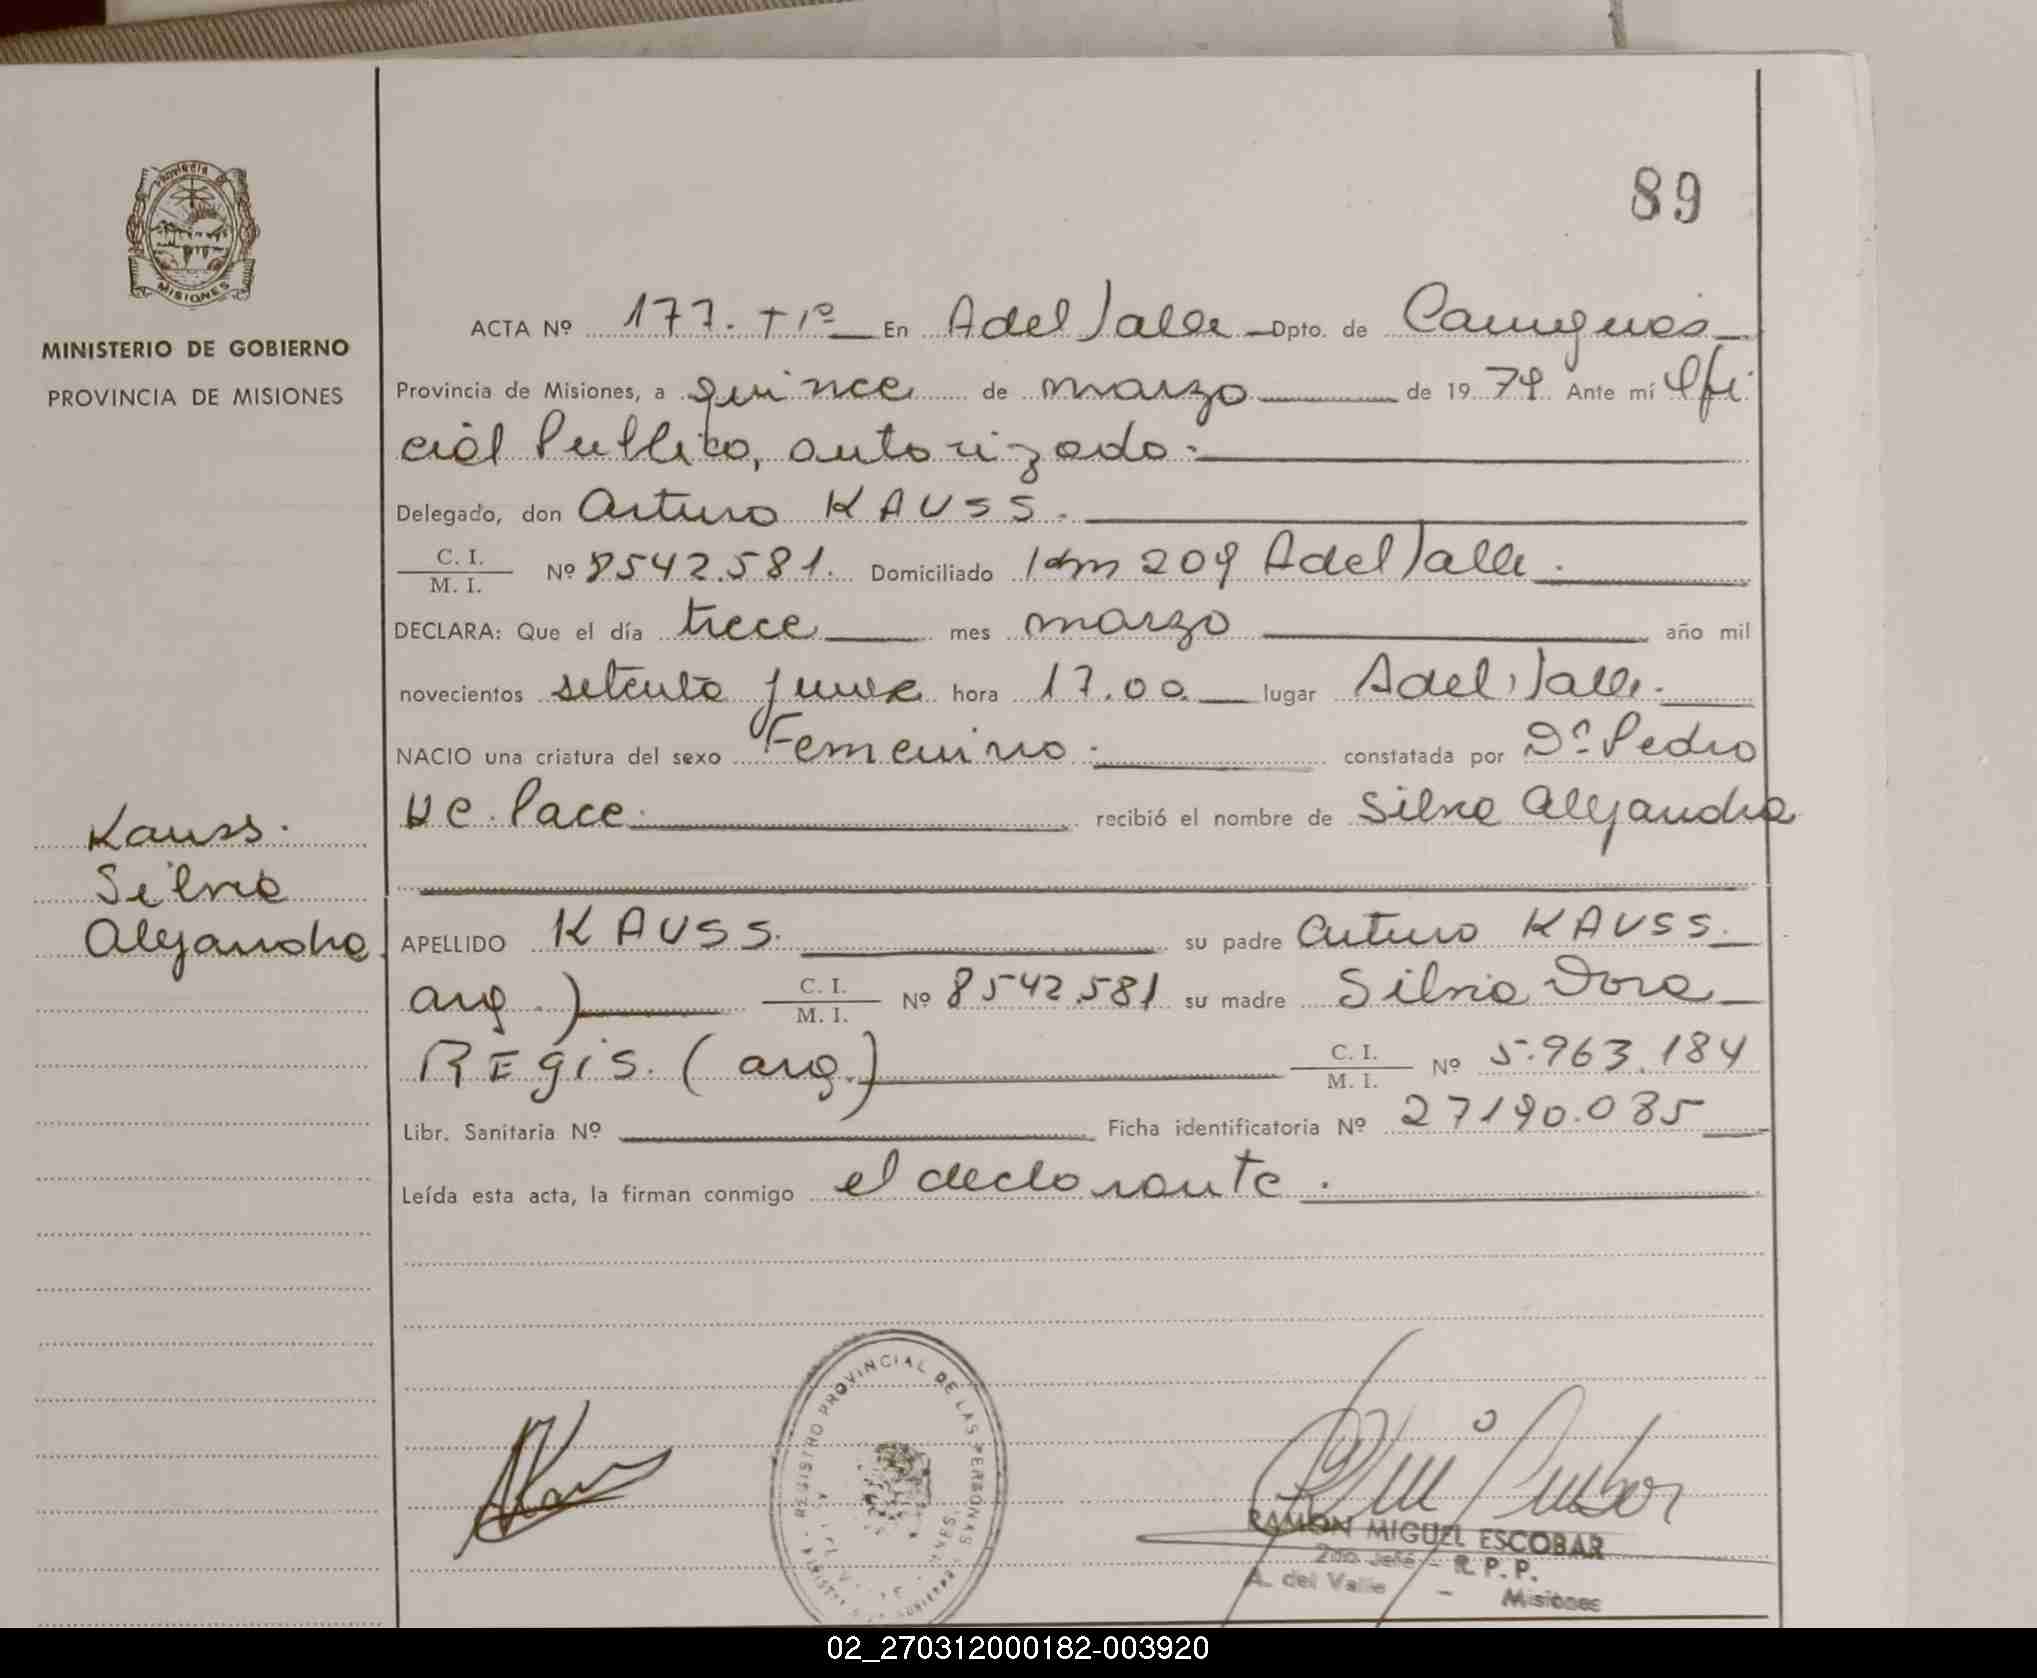 89
Provincia de
MISIONES
MINISTERIO DE GOBIERNO
PROVINCIA DE MISIONES
ACTA Nº 177. T 1º En A del Valle Dpto. de Cainguas
Provincia de Misiones, a quince de marzo de 1979. Ante mí Ofi
cial Publico, autorizado.
Delegado, don Arturo KAUSS.
C. I.
M. I. Nº 8542.581. Domiciliado Km 209 A del Valle.
DECLARA: Que el día trece mes marzo año mil
novecientos setenta y nueve hora 17.00 lugar A del Valle.
NACIO una criatura del sexo Femenino. constatada por Dr. Pedro
De Pace. recibió el nombre de Silvia Alejandra
Kauss.
Silvia
Alejandra
APELLIDO KAUSS. su padre Arturo KAUSS.
arg.) C. I.
M. I. Nº 8542.581 su madre Silvia Dora
REgis. (arg.) C. I.
M. I. Nº 5.963.184
Libr. Sanitaria Nº Ficha identificatoria Nº 27190.085
Leída esta acta, la firman conmigo el declarante.
REGISTRO PROVINCIAL DE LAS PERSONAS
RAMON MIGUEL ESCOBAR
2do. Jefe - R. P. P.
A. del Valle - Misiones
02_270312000182-003920